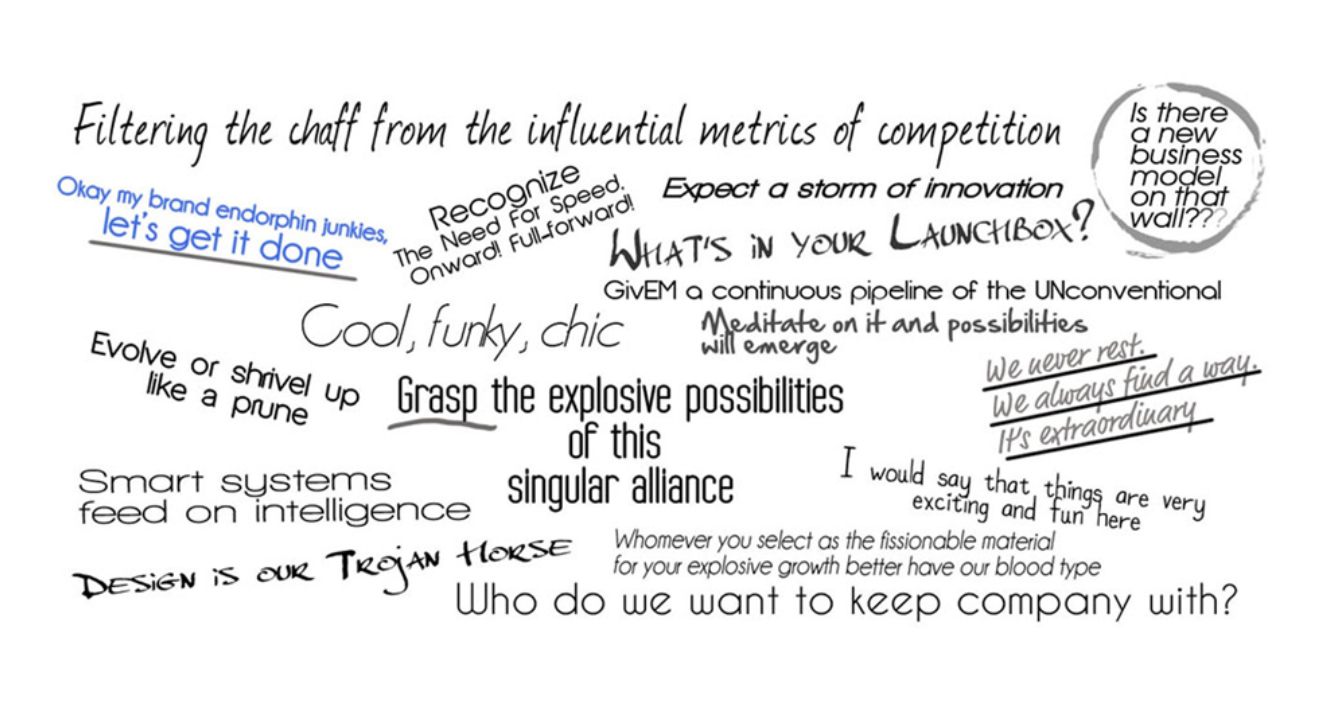 Filtering the chaff from the influential metrics of competition
Is there
a new
business
model
on that
wall???
Okay my brand endorphin junkies,
let's get it done
Recognize
The Need For Speed.
Onward! Full-forward!
Expect a storm of innovation
WHAT'S iN YOUR LAUNCHBOX?
GivEM a continuous pipeline of the UNconventional
Cool, funky, chic
Meditate on it and possibilities
will emerge
Evolve or shrivel up
like a prune
Grasp the explosive possibilities
of this
singular alliance
We never rest.
We always find a way.
It's extraordinary
Smart systems
feed on intelligence
I would say that things are very
exciting and fun here
DESiGN iS OUR TROjAN HORSE
Whomever you select as the fissionable material
for your explosive growth better have our blood type
Who do we want to keep company with?